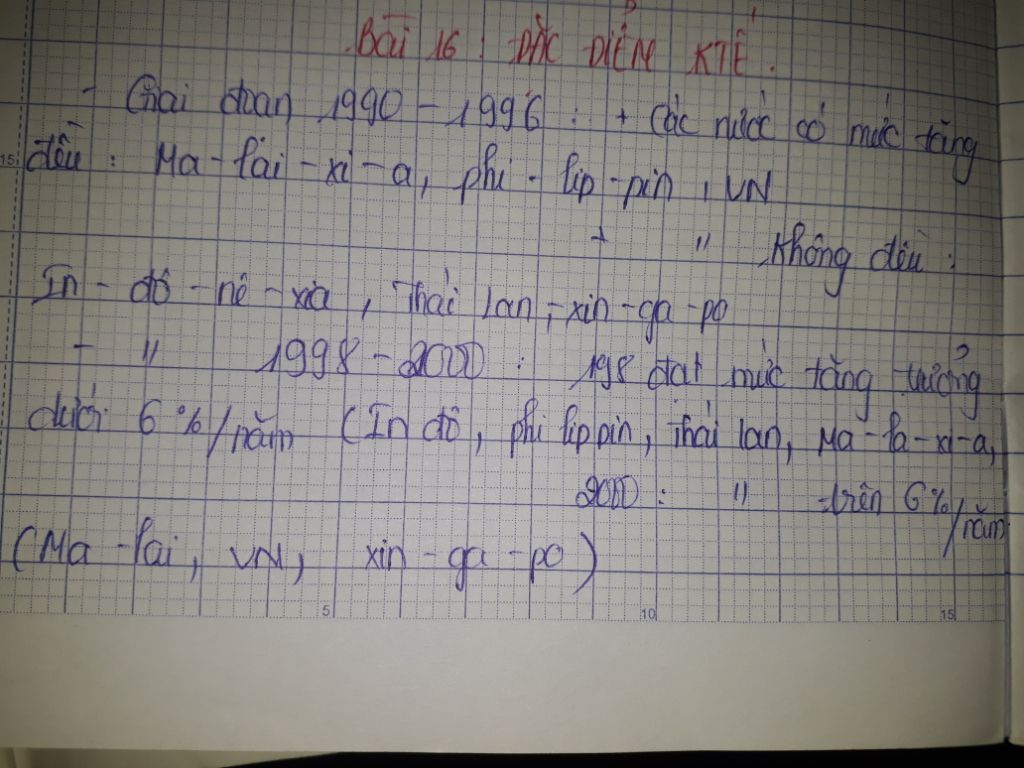 Bài 16 : ĐẶC ĐIỂM KTẾ.
- Giai đoạn 1990 - 1996 : + Các nước có mức tăng
đều : Ma - lai - xi - a, phi - lip - pin, VN
+ " Không đều :
In - đô - nê - xia, Thái Lan, xin - ga - po
- " 1998 - 2000 : 198 đạt mức tăng trưởng
dưới 6%/năm (In đô, phi lip pin, Thái lan, Ma - la - xi - a,
2000 : " trên 6%/năm
(Ma - lai, VN, xin - ga - po)
15
5
10
15